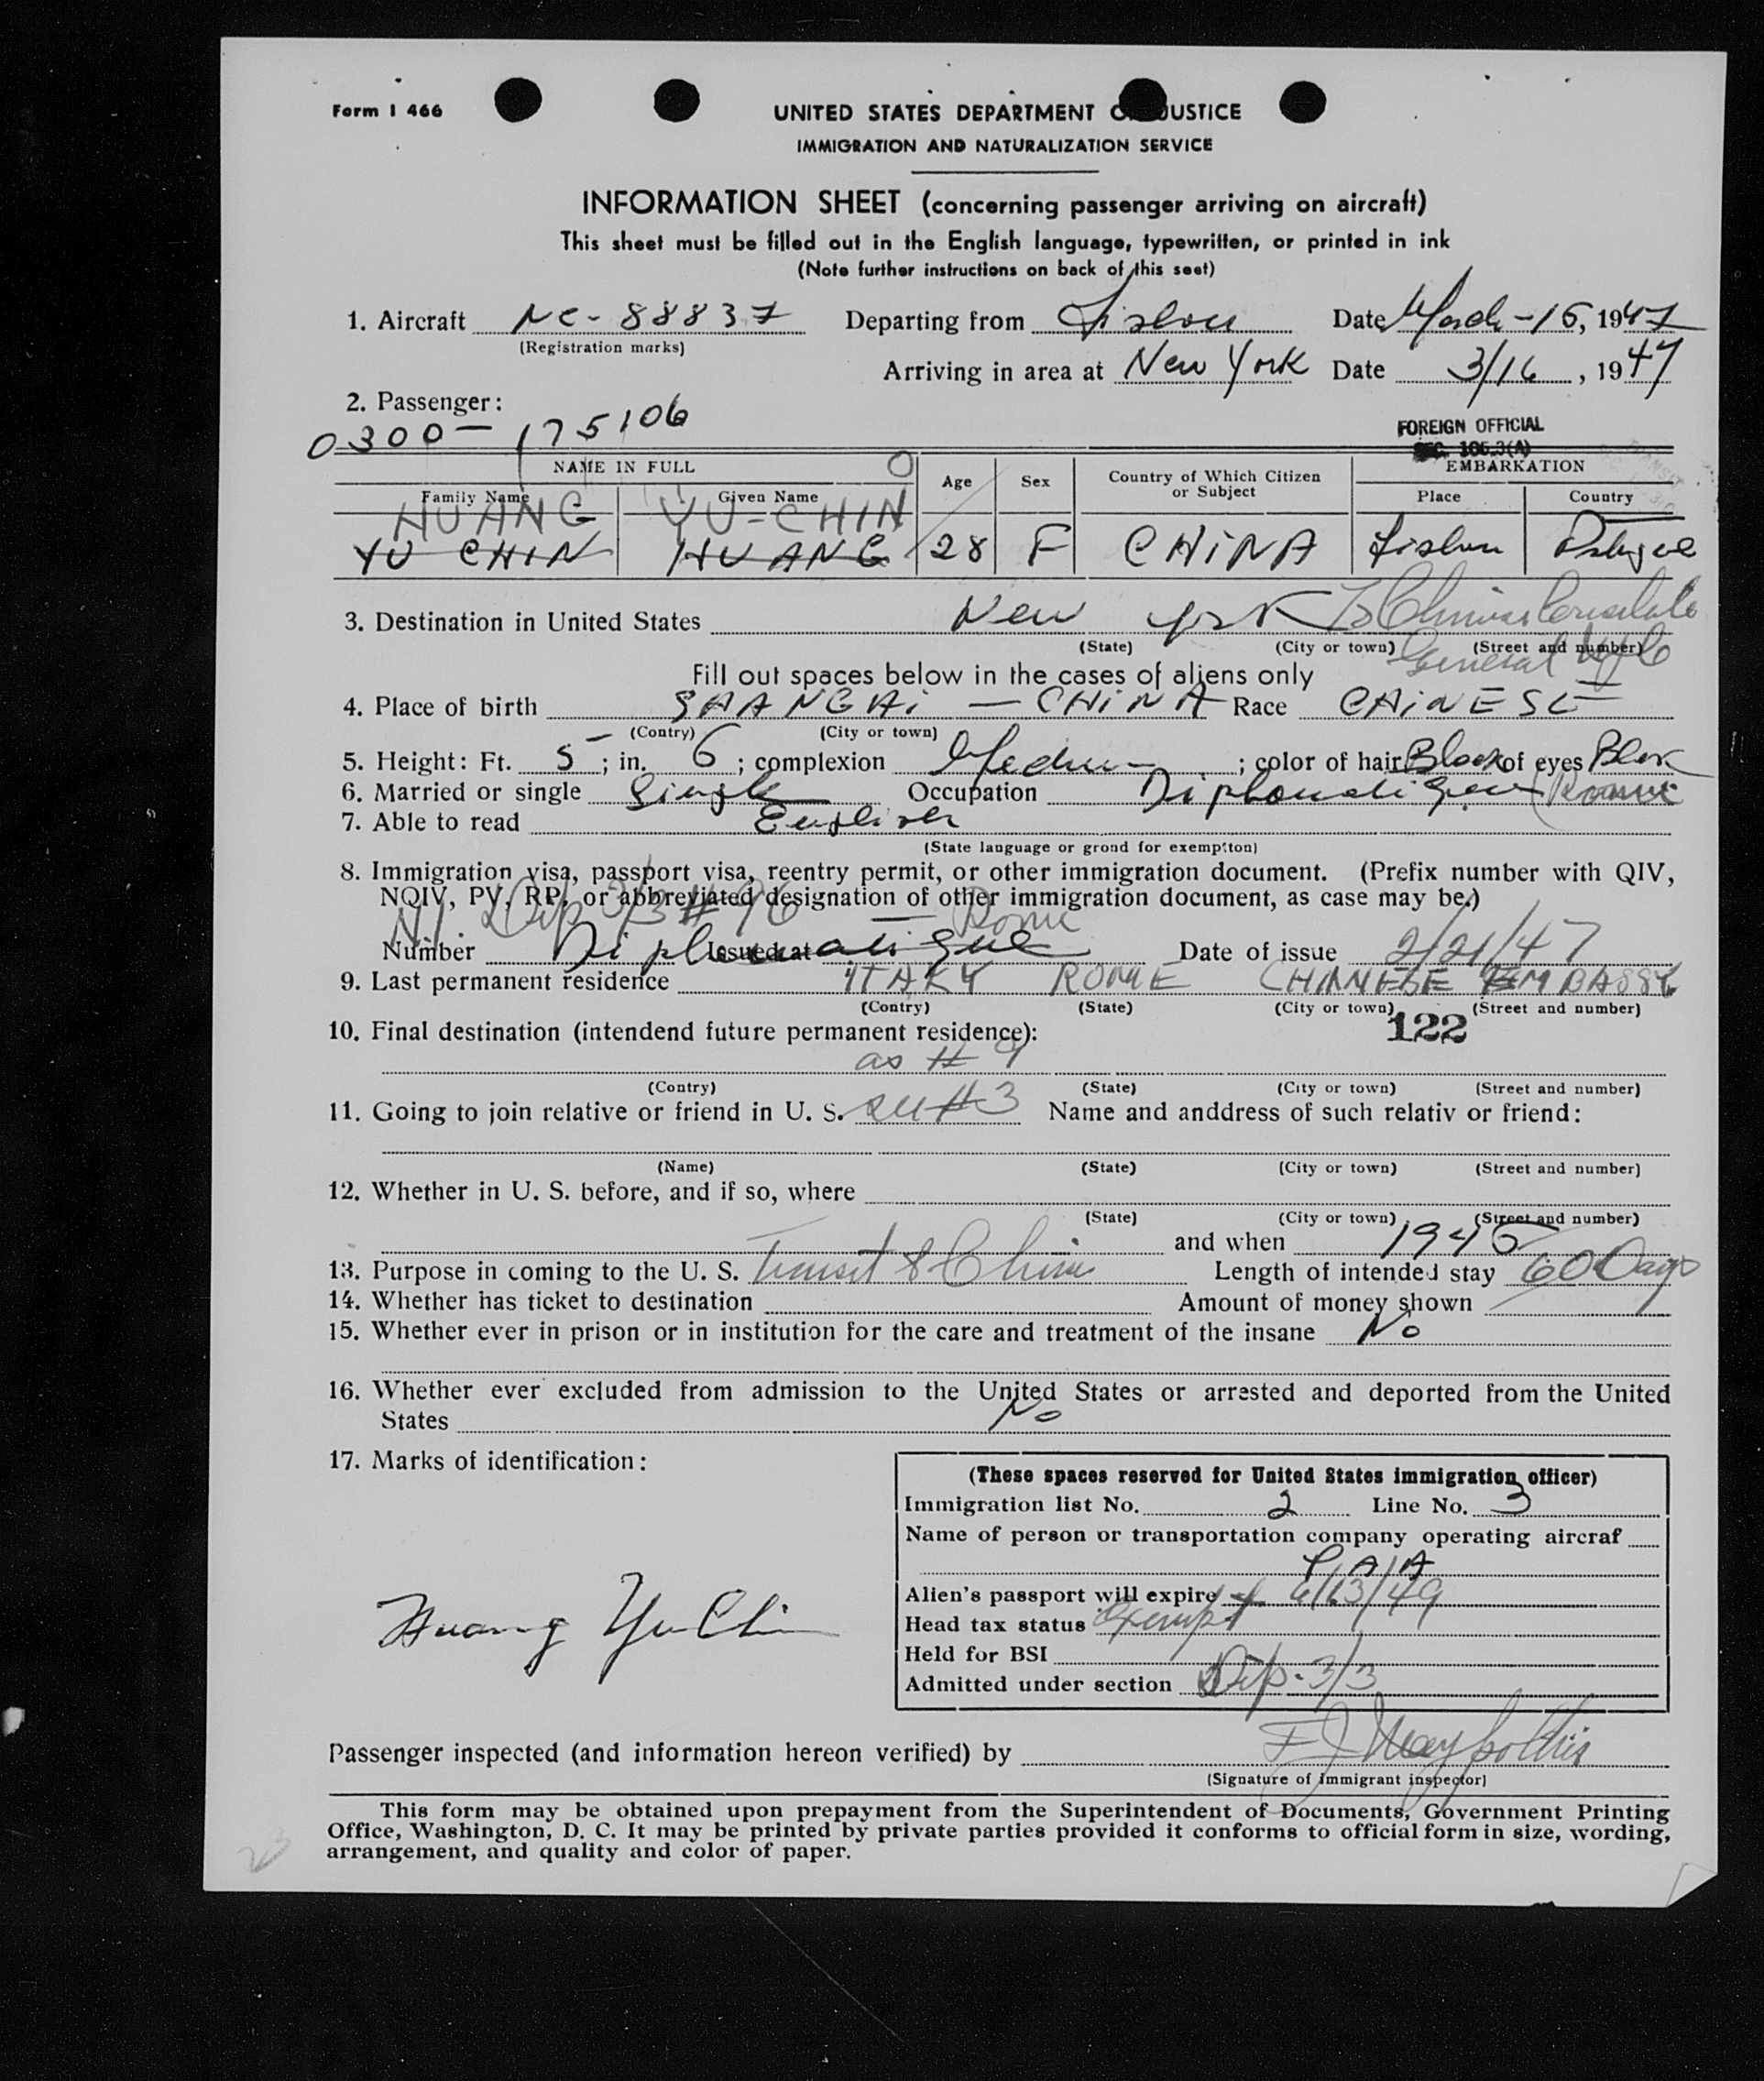 Form I 466
UNITED STATES DEPARTMENT O JUSTICE
IMMIGRATION AND NATURALIZATION SERVICE
INFORMATION SHEET (concerning passenger arriving on aircraft)
This sheet must be filled out in the English language, typewritten, or printed in ink
(Note further instructions on back of this seet)
1. Aircraft NC-88837 Departing from Lisbon Date March-15, 1947
(Registration marks)
Arriving in area at New York Date 3/16, 1947
2. Passenger:
0300- 175106
FOREIGN OFFICIAL
SEC. 106.3(A)
NAME IN FULL Age Sex Country of Which Citizen or Subject EMBARKATION
Family Name Given Name Place Country
HUANG YU-CHIN
YU CHIN HUANG 28 F CHINA Lisbon
3. Destination in United States New York Chinese Consulate
(State) (City or town) (Street and number)
General NYC
Fill out spaces below in the cases of aliens only
4. Place of birth SHANGHAi - CHiNA Race CHiNESE
(Contry) (City or town)
5. Height: Ft. 5; in. 6; complexion Medium; color of hair Black of eyes Black
6. Married or single Single Occupation Diplomatique (Rome
7. Able to read English
(State language or grond for exempton)
8. Immigration visa, passport visa, reentry permit, or other immigration document. (Prefix number with QIV,
NQIV, PV, RP, or abbreviated designation of other immigration document, as case may be.)
Dip 3/3 #96 - Rome
Number Diplomatique Issued at Date of issue 2/21/47
9. Last permanent residence ITALY ROME CHINESE EMBASSY
(Contry) (State) (City or town) (Street and number)
122
10. Final destination (intendend future permanent residence):
as # 9
(Contry) (State) (City or town) (Street and number)
11. Going to join relative or friend in U. S. #3 Name and anddress of such relativ or friend:
(Name) (State) (City or town) (Street and number)
12. Whether in U. S. before, and if so, where
(State) (City or town) (Street and number)
and when 1945
13. Purpose in coming to the U. S. Transit to China Length of intended stay 60 Days
14. Whether has ticket to destination Amount of money shown
15. Whether ever in prison or in institution for the care and treatment of the insane No
16. Whether ever excluded from admission to the United States or arrested and deported from the United
States No
17. Marks of identification:
(These spaces reserved for United States immigration officer)
Immigration list No. 2 Line No. 3
Name of person or transportation company operating aircraf
P A A
Alien's passport will expire 6/13/49
Head tax status Exempt
Held for BSI
Admitted under section Dip. 3/3
Huang Yu Chin
Passenger inspected (and information hereon verified) by
(Signature of immigrant inspector)
This form may be obtained upon prepayment from the Superintendent of Documents, Government Printing
Office, Washington, D. C. It may be printed by private parties provided it conforms to official form in size, wording,
arrangement, and quality and color of paper.
23